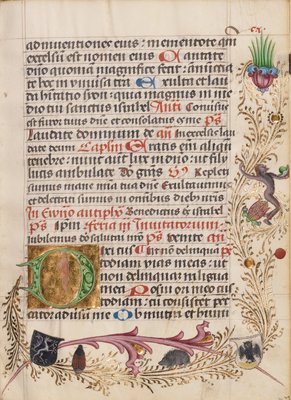 adinventiones eius: mementote qm̄
excelsum est nomen eius Cantate
dn̄o quoniam magnifice fecit: annuncia
te hec in univ̄sa terra Exulta et lau
da habitatio syon: quia magnus in me
dio tui sanctus israhel Anti Conv̄sus
est furor tuus dn̄e et consolatus es me ps
Laudate dominum de an In excelsis lau
date deum Caplm̄ Eratis em̄ aliqn̄
tenebre: nunc aūt lux in dn̄o: ut filij
lucis ambulate Deo grās Repleti
sumus mane mīa tua dn̄e Exultavimus
et delectati sumus in omnibus diebus nr̄is
In Evvāg antiphō Benedictus ds israhel
ps ipm̄ feria iii Invitatorium
Jubilemus deo salutari nr̄o ps Venite an
Ut non delinqua ps
Dixi custodiam vias meas: ut
non delinquam in lingua
mea Posui ori meo cus
todiam: cum consisteret pec
cator adv̄sum me Obmutui et humi